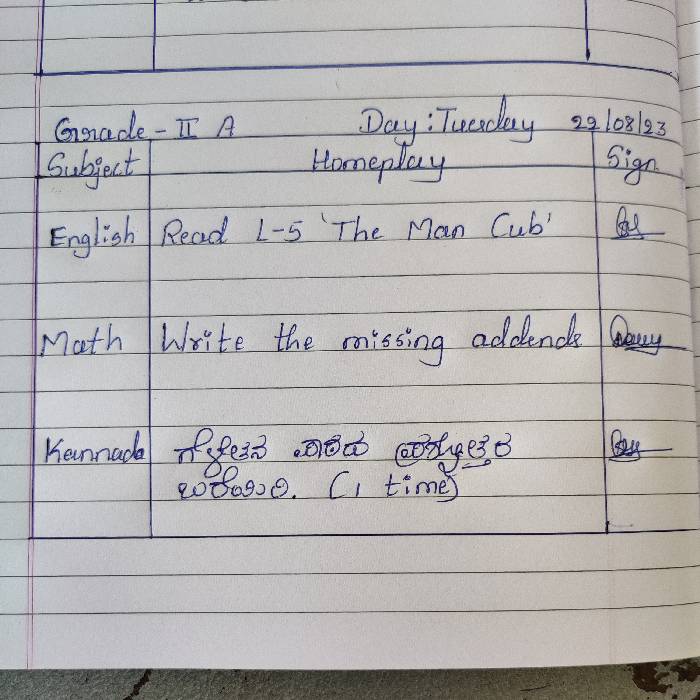 Grade - II A Day : Tuesday 22/08/23
Subject Homeplay Sign
English Read L-5 'The Man Cub'
Math Write the missing addends
Kannada ಗೆಳೆತನ ಪಾಠದ ಪ್ರಶ್ನೋತ್ತರ
ಬರೆಯಿರಿ. (1 time)